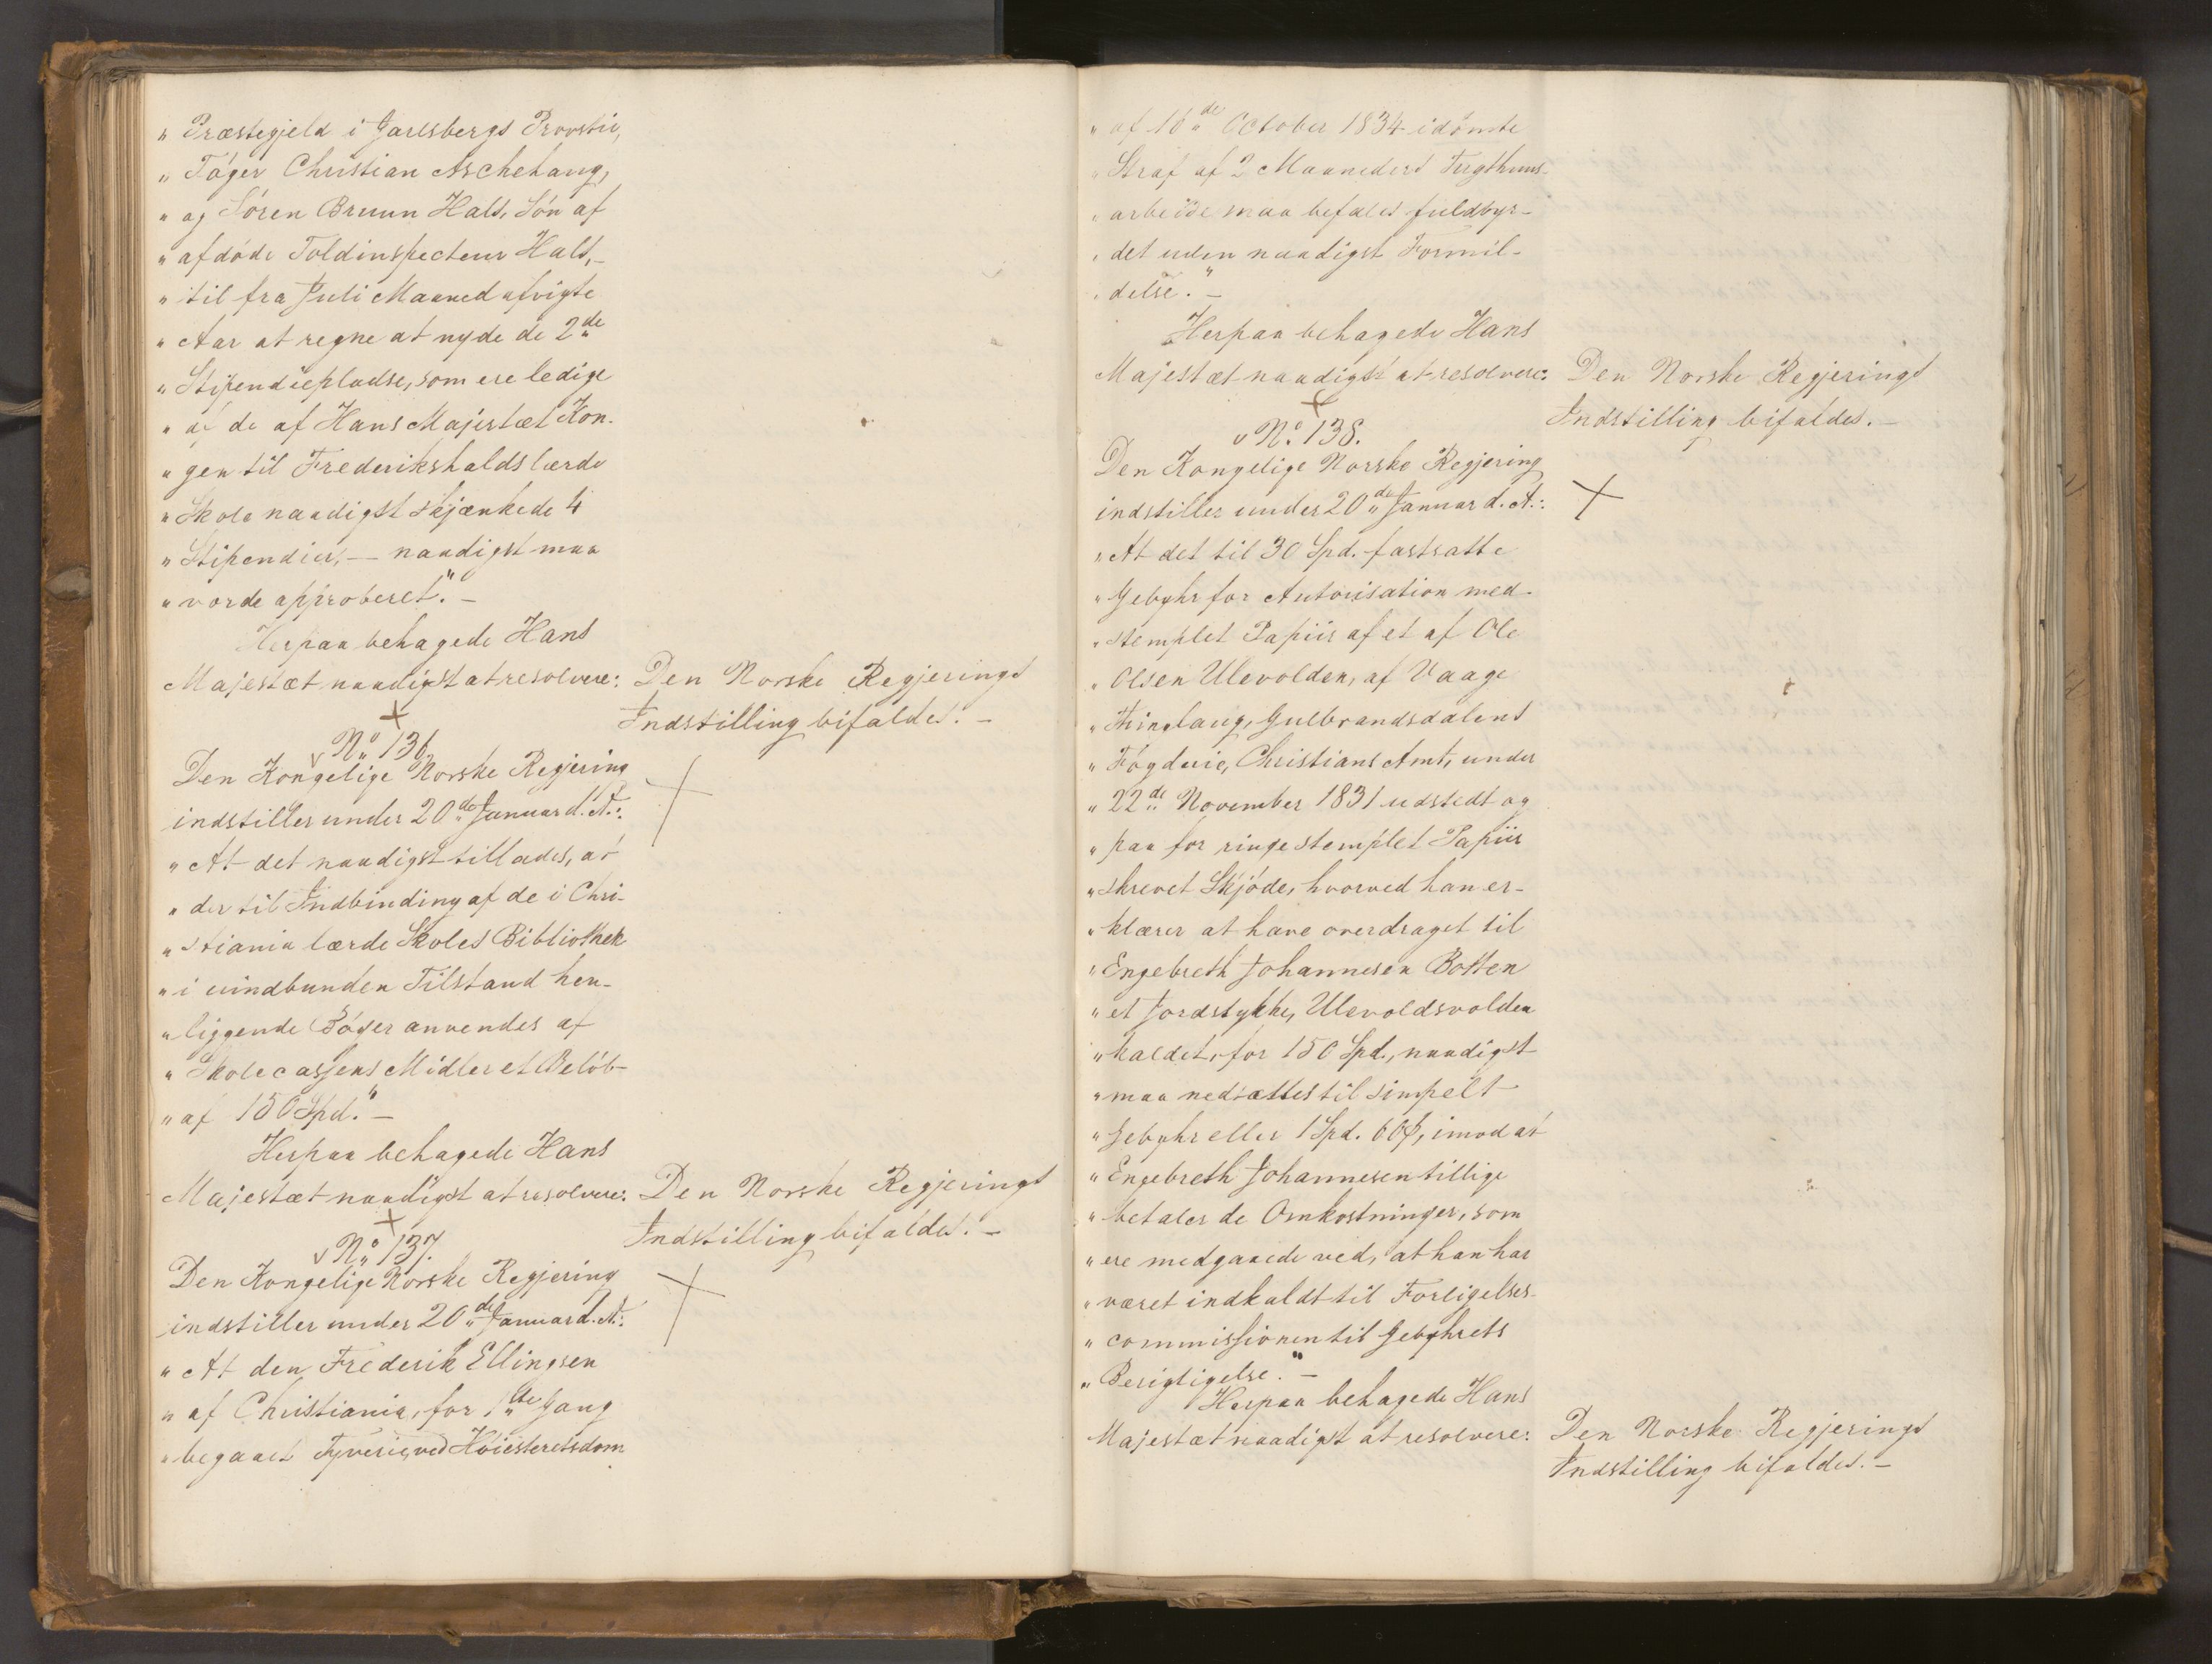 „ Præstegjeld i Jarlsbergs Provstie,
„ Töger Christian Aschehaug,
„ og Sören Bruun Hals, Sön af
„ afdöde Toldinspecteur Hals,—
„ til fra Juli Maaned afvigte
„ Aar at regne at nyde de 2de
„ Stipendiepladse, som ere ledige
„ af de af Hans Majestæt Kon-
„ gen til Frederikshalds lærde
„ Skole naadigst skjænkede 4
„ Stipendier, — naadigst maa
„ vorde approberet." —
Herpaa behagede Hans
Majestæt naadigst at resolvere: Den Norske Regjerings
Indstilling bifaldes. —
No 136.
Den Kongelige Norske Regjering
indstiller under 20de Januar d. A.:
„ At det naadigst tillades, at
„ der til Indbinding af de i Chri-
„ stiania lærde Skoles Bibliothek
„ i uindbunden Tilstand hen-
„ liggende Böger anvendes af
„ Skolecassens Midler et Belöb
„ af 150 Spd." —
Herpaa behagede Hans
Majestæt naadigst at resolvere: Den Norske Regjerings
Indstilling bifaldes. —
No 137.
Den Kongelige Norske Regjering
indstiller under 20de Januar d. A.:
„ At den Frederik Ellingsen
„ af Christiania, for 1ste Gang
„ begaaet Tyverie, ved Höiesteretsdom
„ af 16de October 1834 idömte
„ Straf af 2 Maaneders Tugthuus-
„ arbeide maa befales fuldbyr-
„ det uden naadigst Formil-
„ delse." —
Herpaa behagede Hans
Majestæt naadigst at resolvere: Den Norske Regjerings
Indstilling bifaldes. —
No 138.
Den Kongelige Norske Regjering
indstiller under 20de Januar d. A.:
„ At det til 30 Spd. fastsatte
„ Gebyhr for Autorisation med
„ stemplet Papiir af et af Ole
„ Olsen Ulevolden, af Vaage
„ Thinglaug, Gulbrandsdalens
„ Fögderie, Christians Amt, under
„ 22de November 1831 udstedt og
„ paa for ringe stemplet Papiir
„ skrevet Skjöde, hvorved han er-
„ klærer at have overdraget til
„ Engebreth Johannesen Botten
„ et Jordstykke, Ulevoldsvolden
„ kaldet, for 150 Spd., naadigst
„ maa nedsættes til simpelt
„ Gebyhr eller 1 Spd. 60 ß, imod at
„ Engebreth Johannesen tillige
„ betaler de Omkostninger, som
„ ere medgaaede ved, at han har
„ været indkaldt til Forligelses-
„ commissionen til Gebyhrets
„ Berigtigelse." —
Herpaa behagede Hans
Majestæt naadigst at resolvere: Den Norske Regjerings
Indstilling bifaldes. —